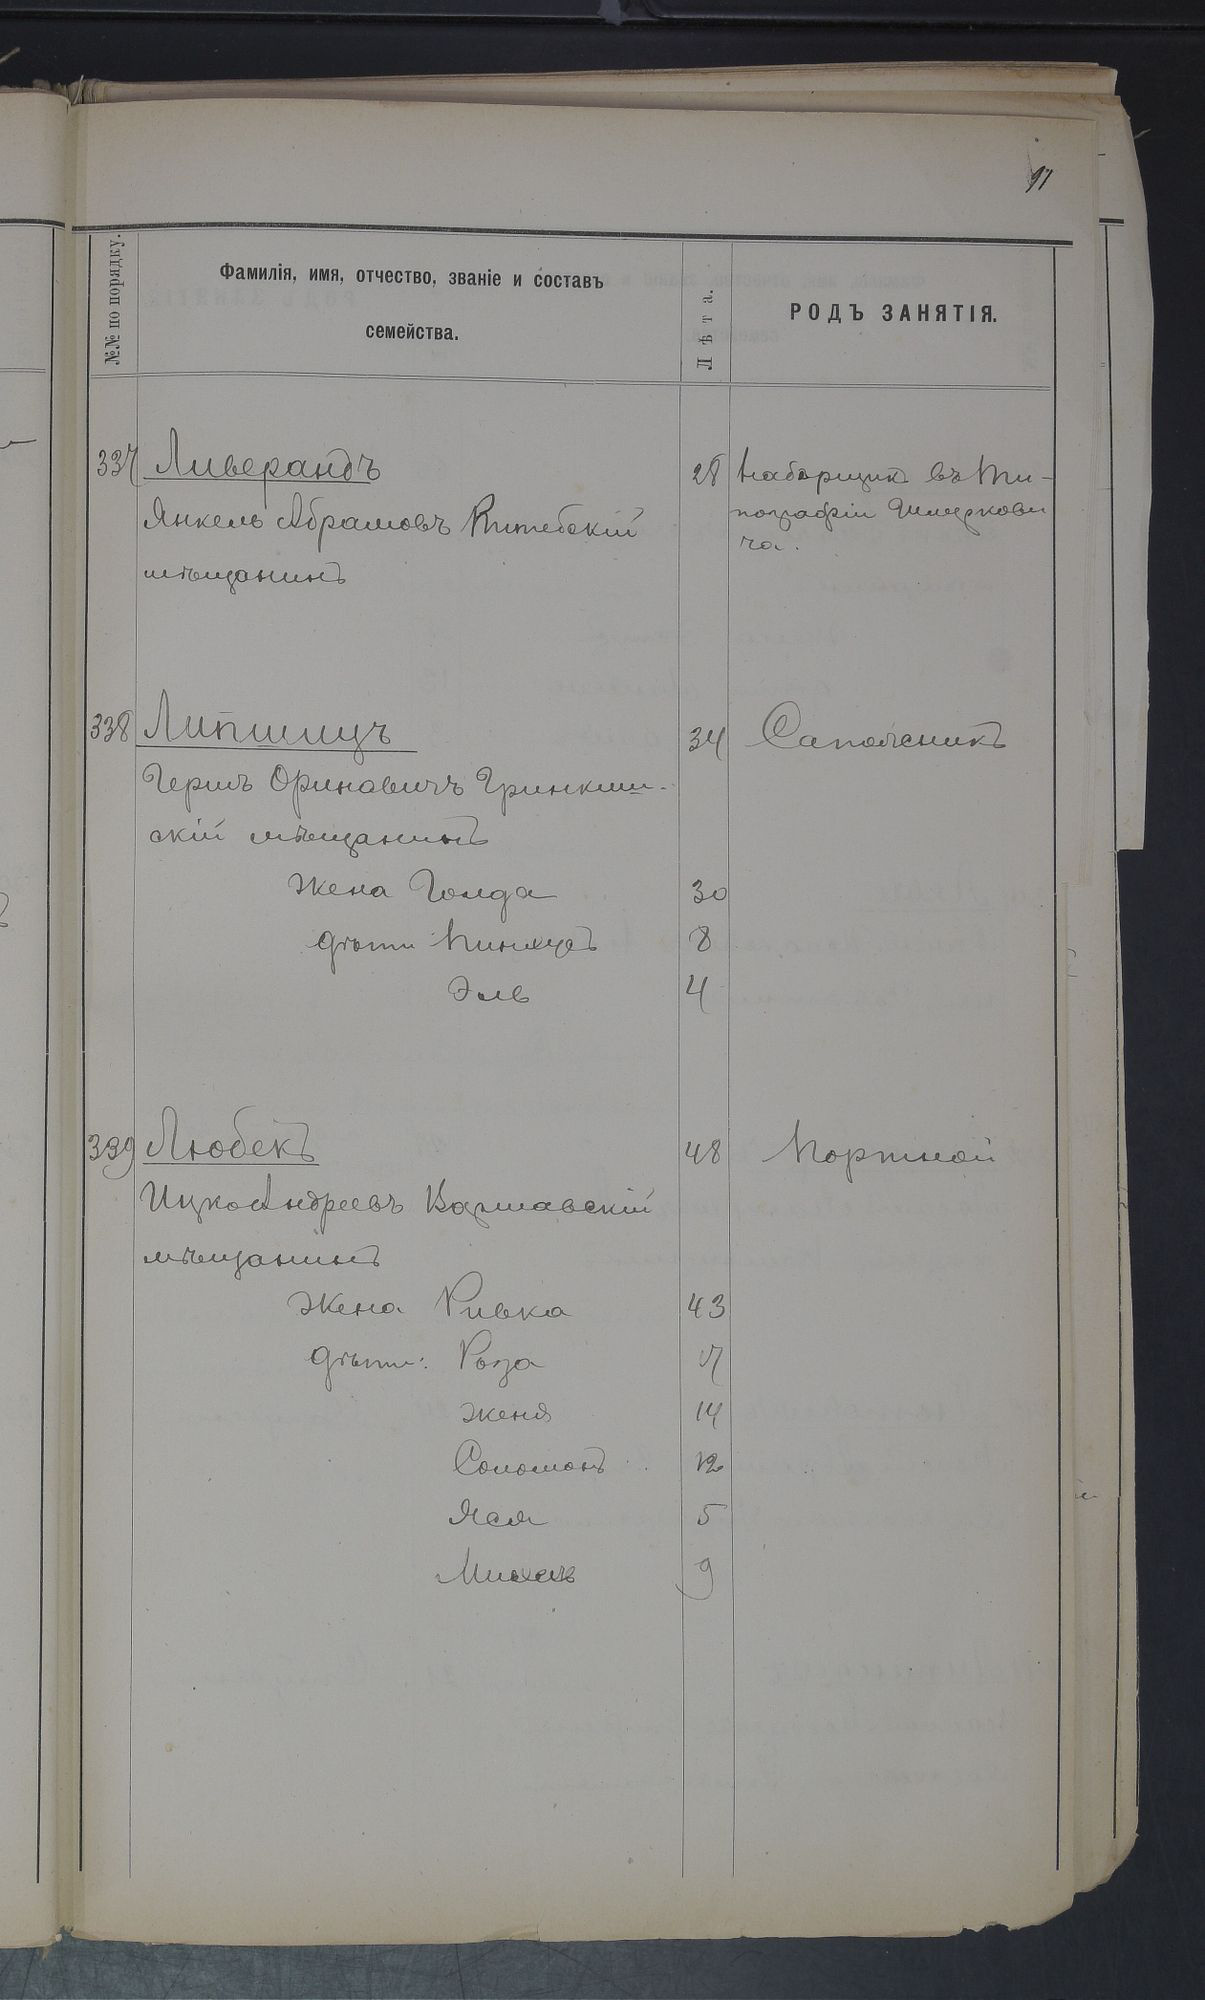 91
№№ по порядку.
Фамилія, имя, отчество, званіе и составъ
семейства.
Лѣта.
РОДЪ ЗАНЯТІЯ.
337 Ливерандъ 28 Наборщик въ ти-
Янкель Абрамовъ Витебскій пографіи Шмуркови
ча.
мѣщанинъ
338 Липшицъ 34 Сапожникъ
Гершъ Ориновичъ Гринкиш-
скій мѣщанинъ
Жена Голда 30
дѣти Пинхусъ 8
Эль 4
339 Любекъ 48 Портной
Ицко Андреевъ Варшавскій
мѣщанинъ
Жена Ривка 43
дѣти: Роза 17
Женя 14
Соломонъ 12
Яся 5
9